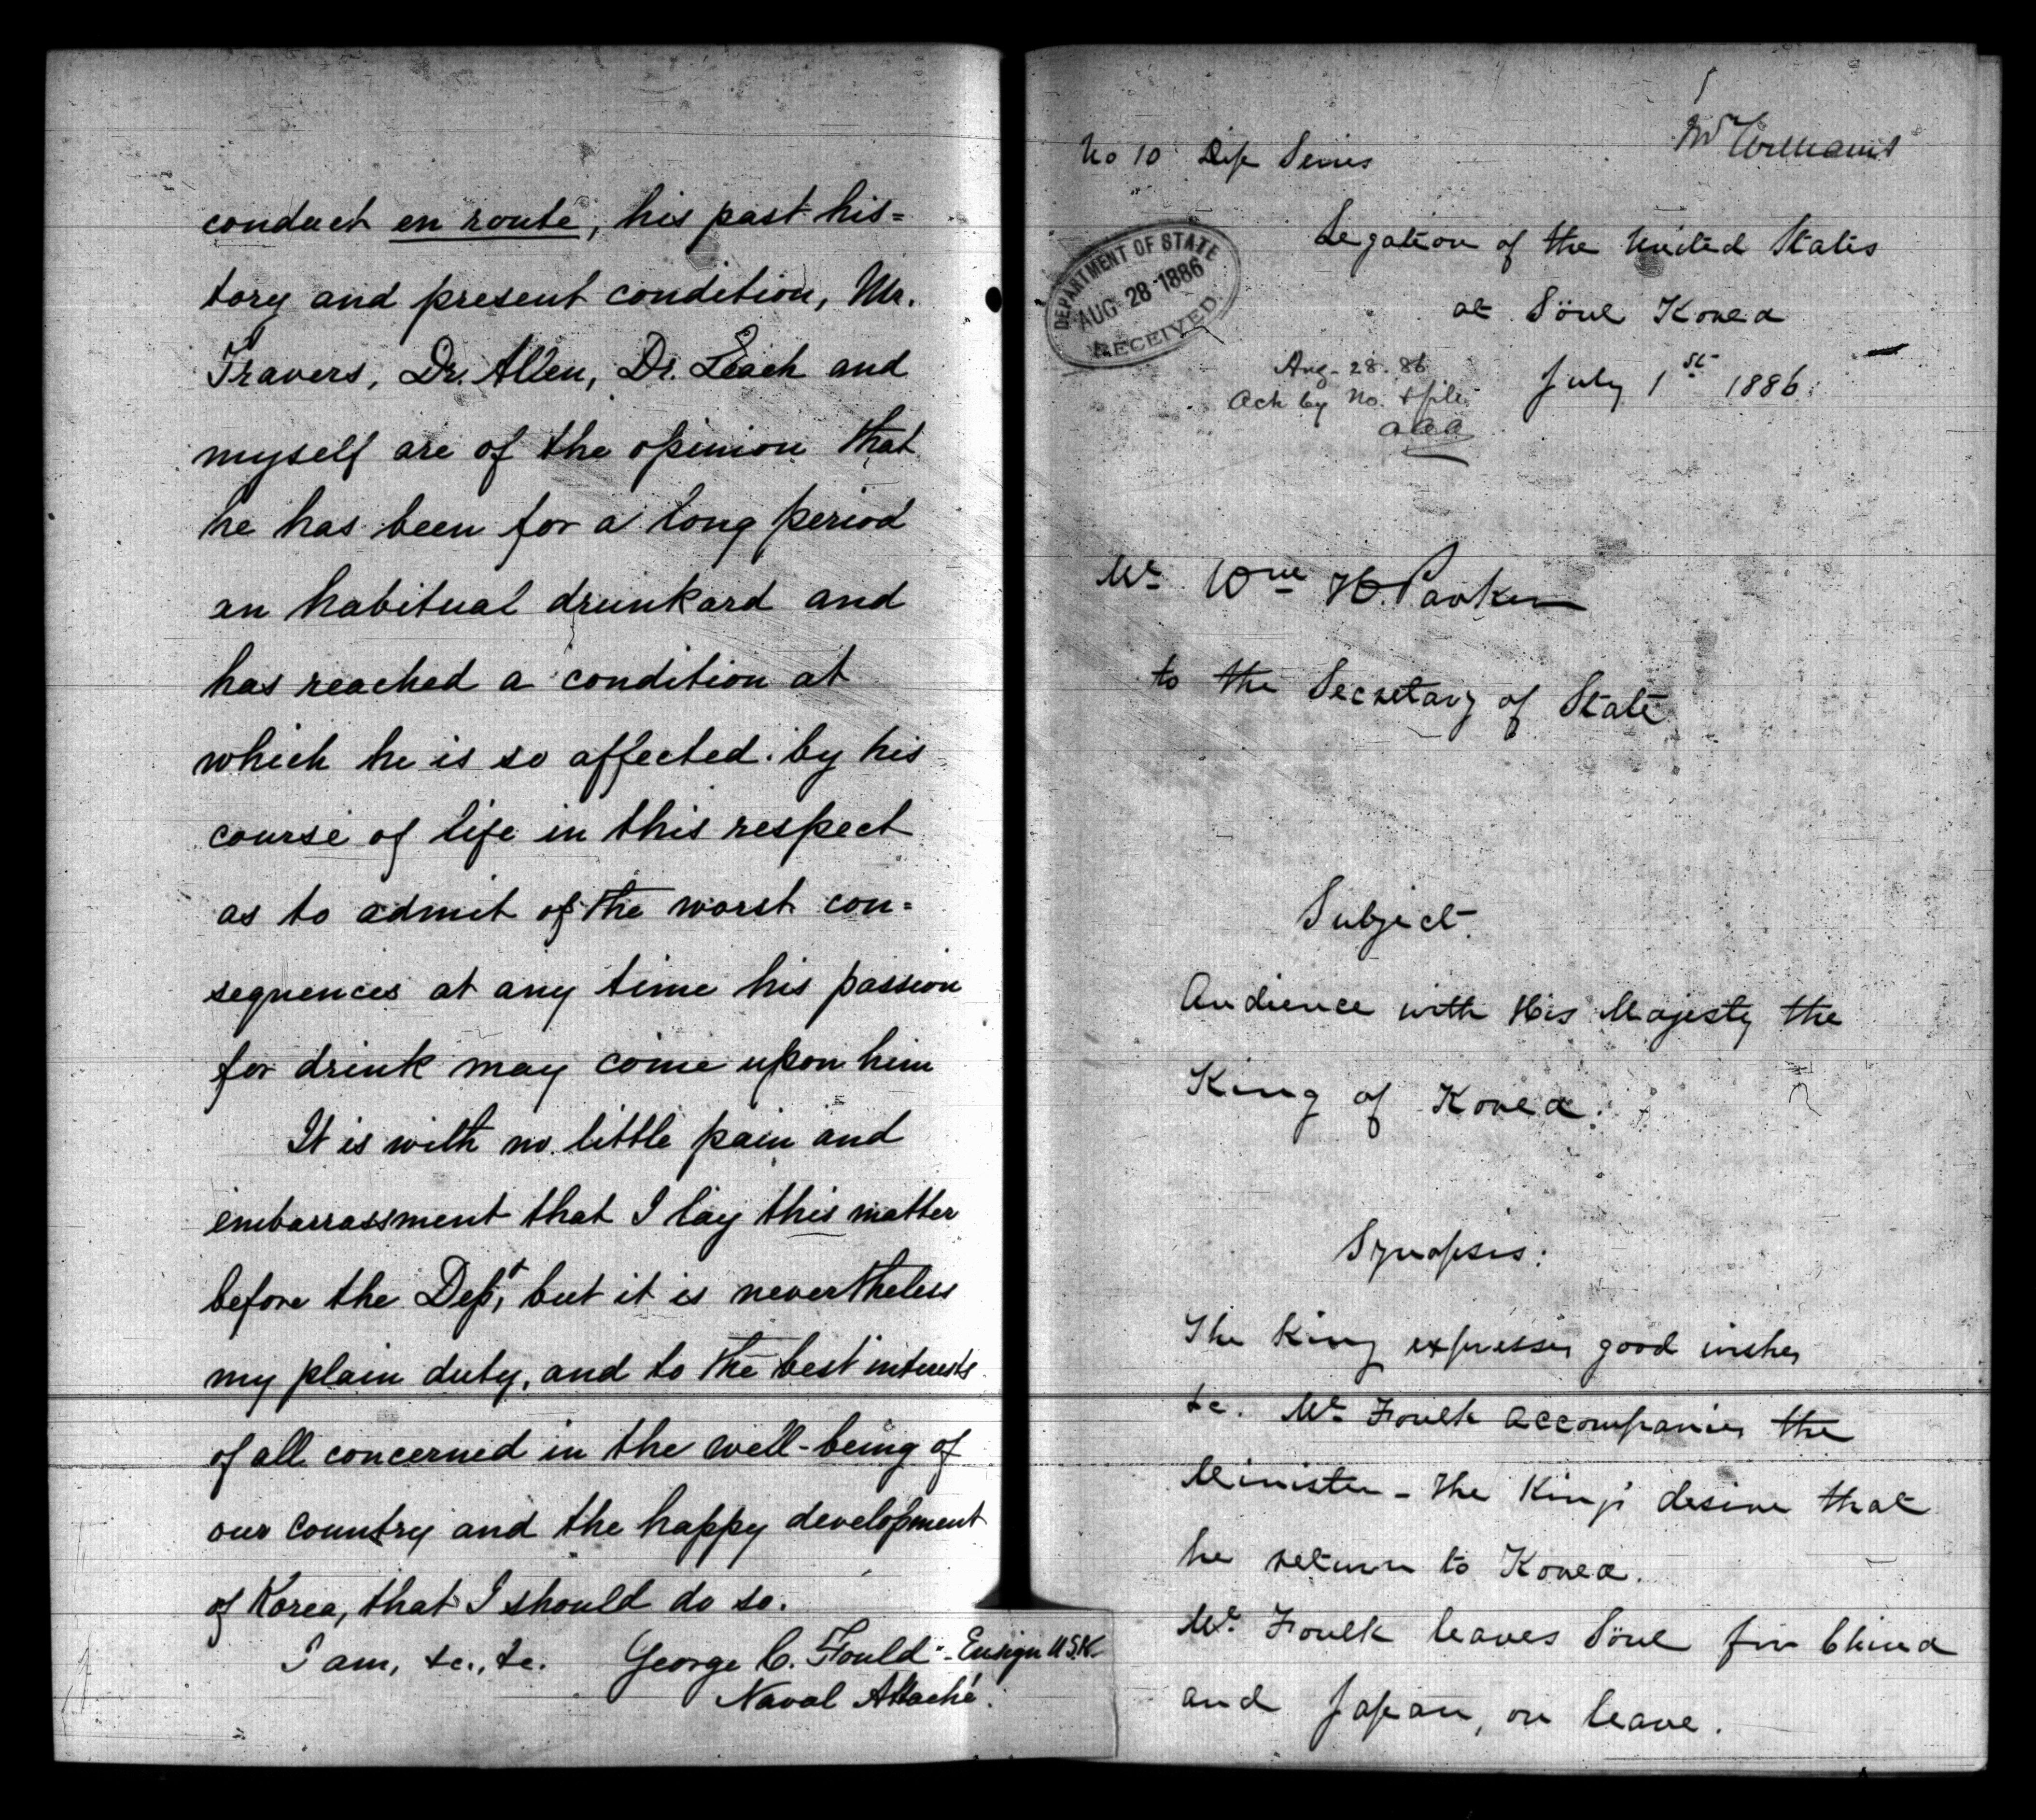 conduct en route, his past his=
tory and present condition, Mr.
Travers, Dr. Allen, Dr. Leach and
myself are of the opinion that
he has been for a long period
an habitual drunkard and
has reached a condition at
which he is so affected by his
course of life in this respect
as to admit of the worst con=
sequences at any time his passion
for drink may come upon him
It is with no little pain and
embarrassment that I lay this matter
before the Dept, but it is nevertheless
my plain duty, and to the best interests
of all concerned in the well-being of
our country and the happy development
of Korea, that I should do so.
I am, &c., &c. George C. Fould - Ensign U.S.N.
Naval Attaché.
Mr Williams
No 10 Dip Series
Legation of the United States
at Söul Korea
DEPARTMENT OF STATE
AUG 28 1886
RECEIVED
July 1st 1886.
Aug. 28. 86
Ack by No. & file
aaa
Mr Wm H. Parker
to the Secretary of State
Subject.
Audience with His Majesty the
King of Korea.
Synopsis:
The King expresses good wishes
&c. Mr Foulk accompanies the
Minister - The King's desire that
he return to Korea.
Mr. Foulk leaves Söul for China
and Japan, on leave.